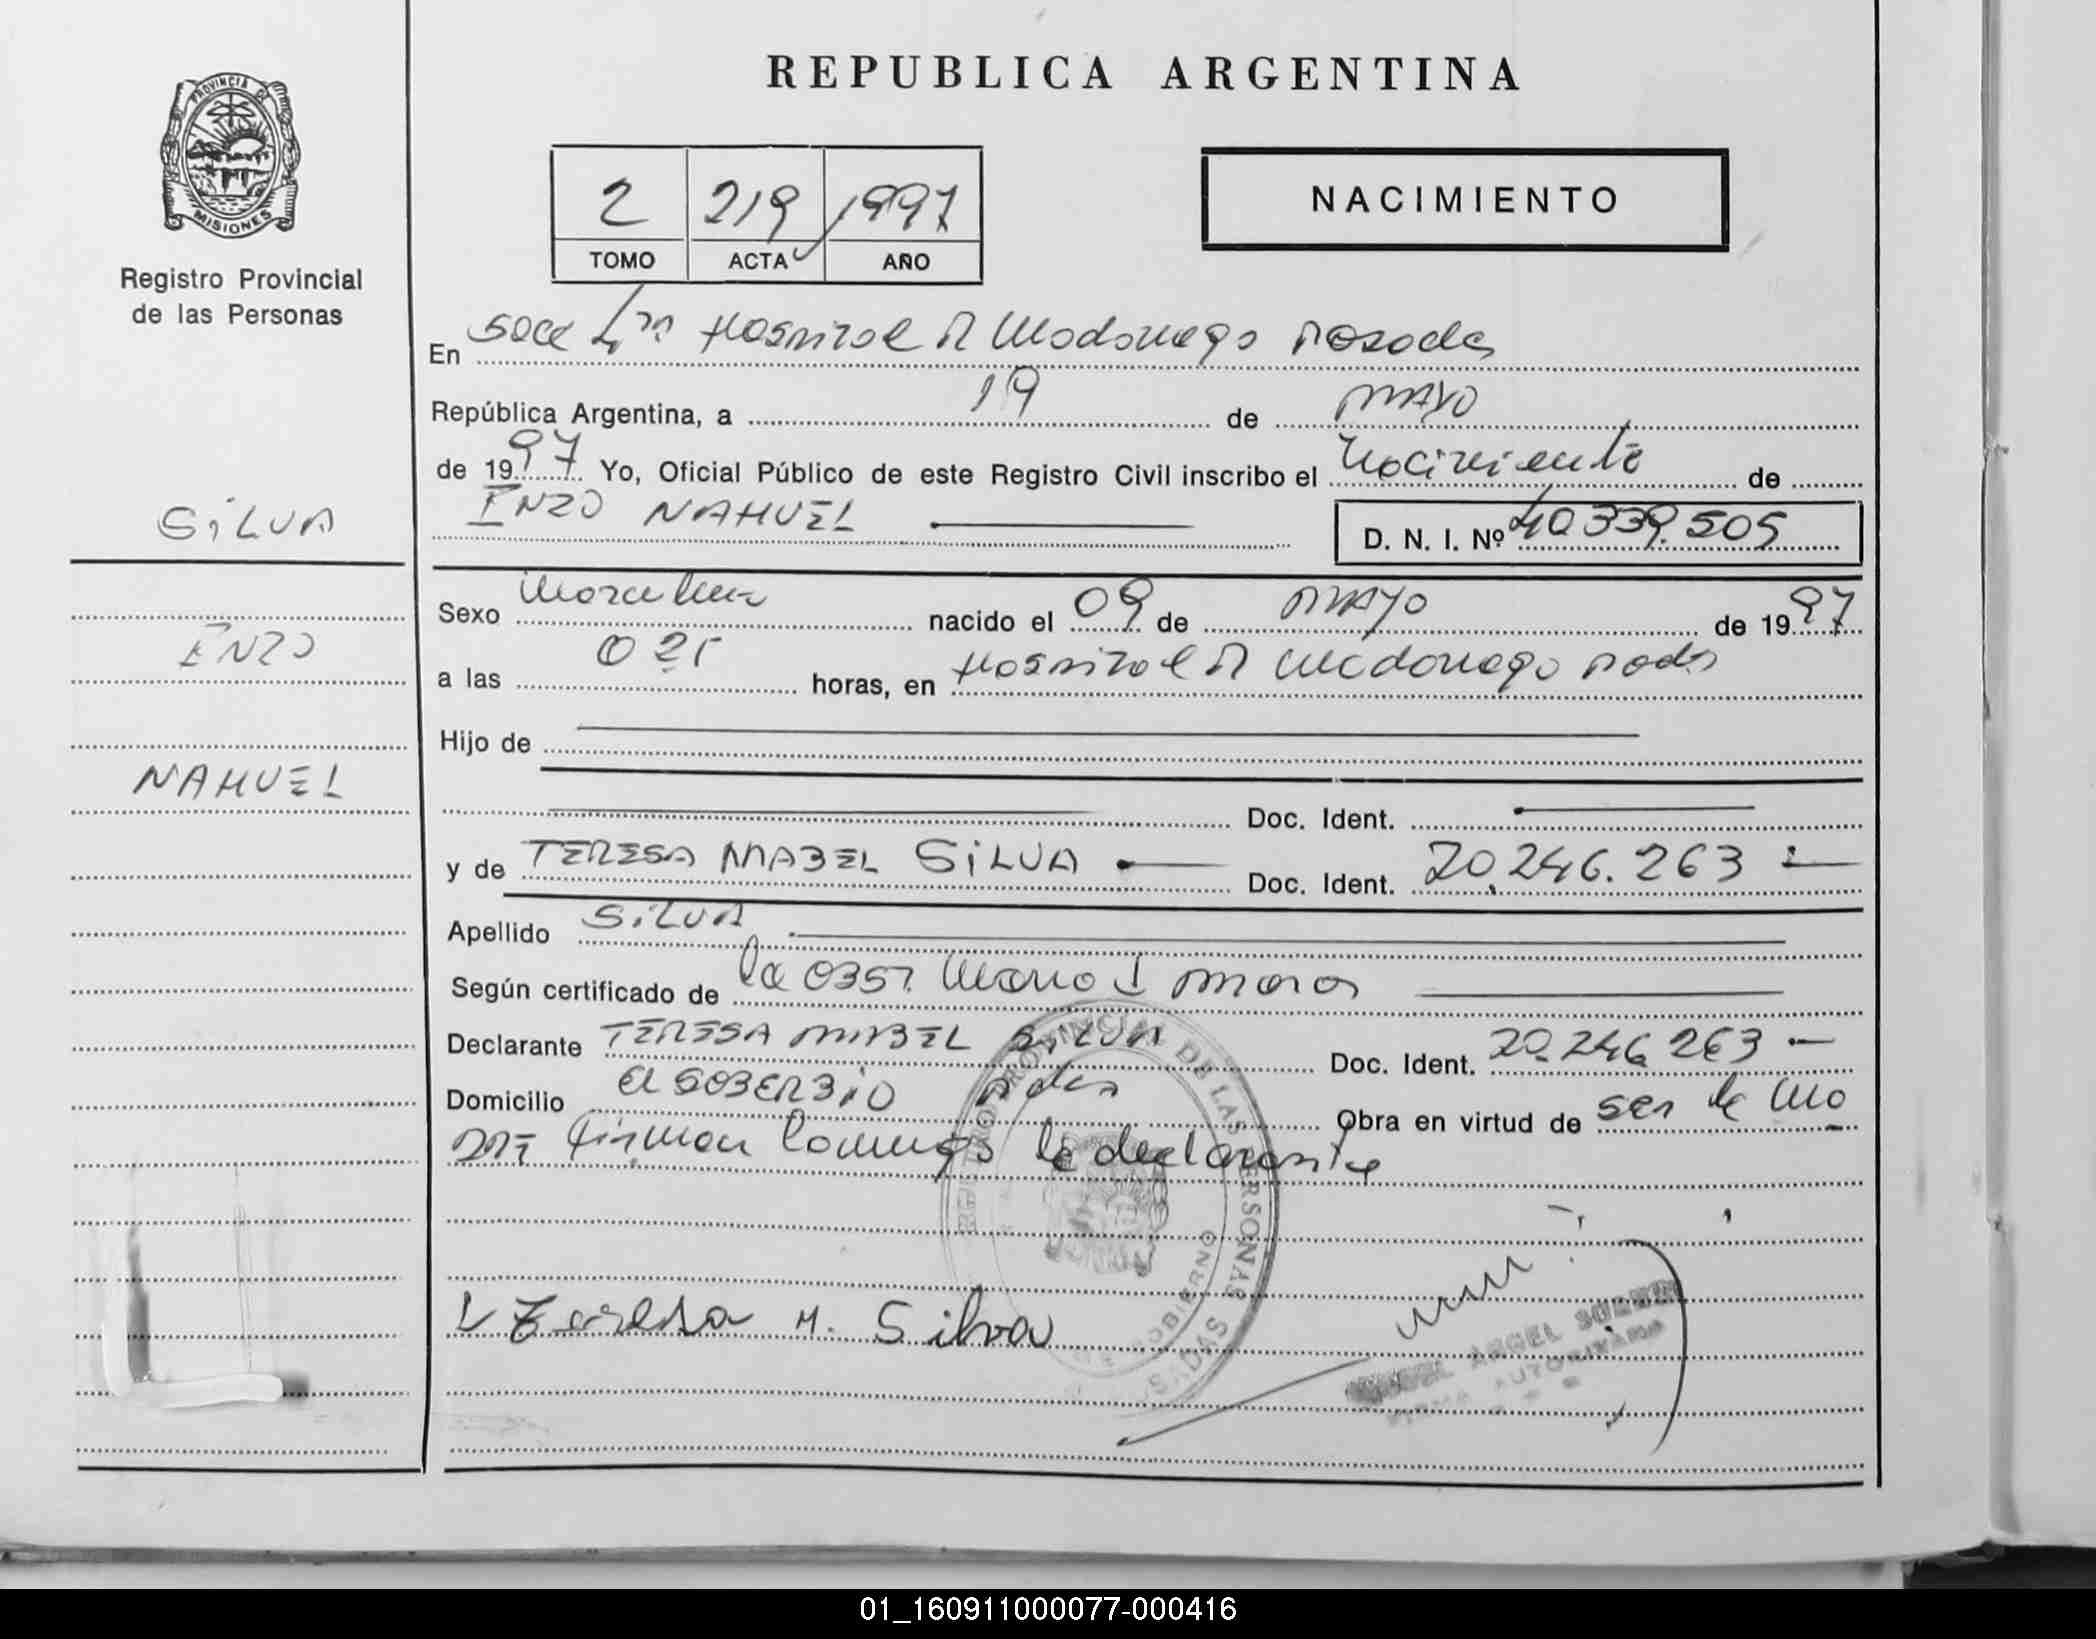 REPUBLICA ARGENTINA
PROVINCIA DE
MISIONES
Registro Provincial
de las Personas
2 219 1997
TOMO ACTA AÑO
NACIMIENTO
En Secc Hospital R Madariaga Posadas
República Argentina, a 19 de MAYO
de 1997 Yo, Oficial Público de este Registro Civil inscribo el Nacimiento de
ENZO NAHUEL D. N. I. Nº 40.339.505
SILVA
ENZO
NAHUEL
Sexo Masculino nacido el 09 de MAYO de 1997
a las horas, en Hospital R Madariaga Pdas
Hijo de
Doc. Ident.
y de TERESA MABEL SILVA Doc. Ident. 20.246.263
Apellido SILVA
Según certificado de la Obst.
Declarante TERESA MABEL SILVA Doc. Ident. 20.246.263
Domicilio El SOBERBIO Obra en virtud de ser la Ma
dre firman conmigo la declarante
PROVINCIAL DE LAS PERSONAS
Teresa M. Silva
ANGEL
FIRMA AUTORIZADA
01_160911000077-000416